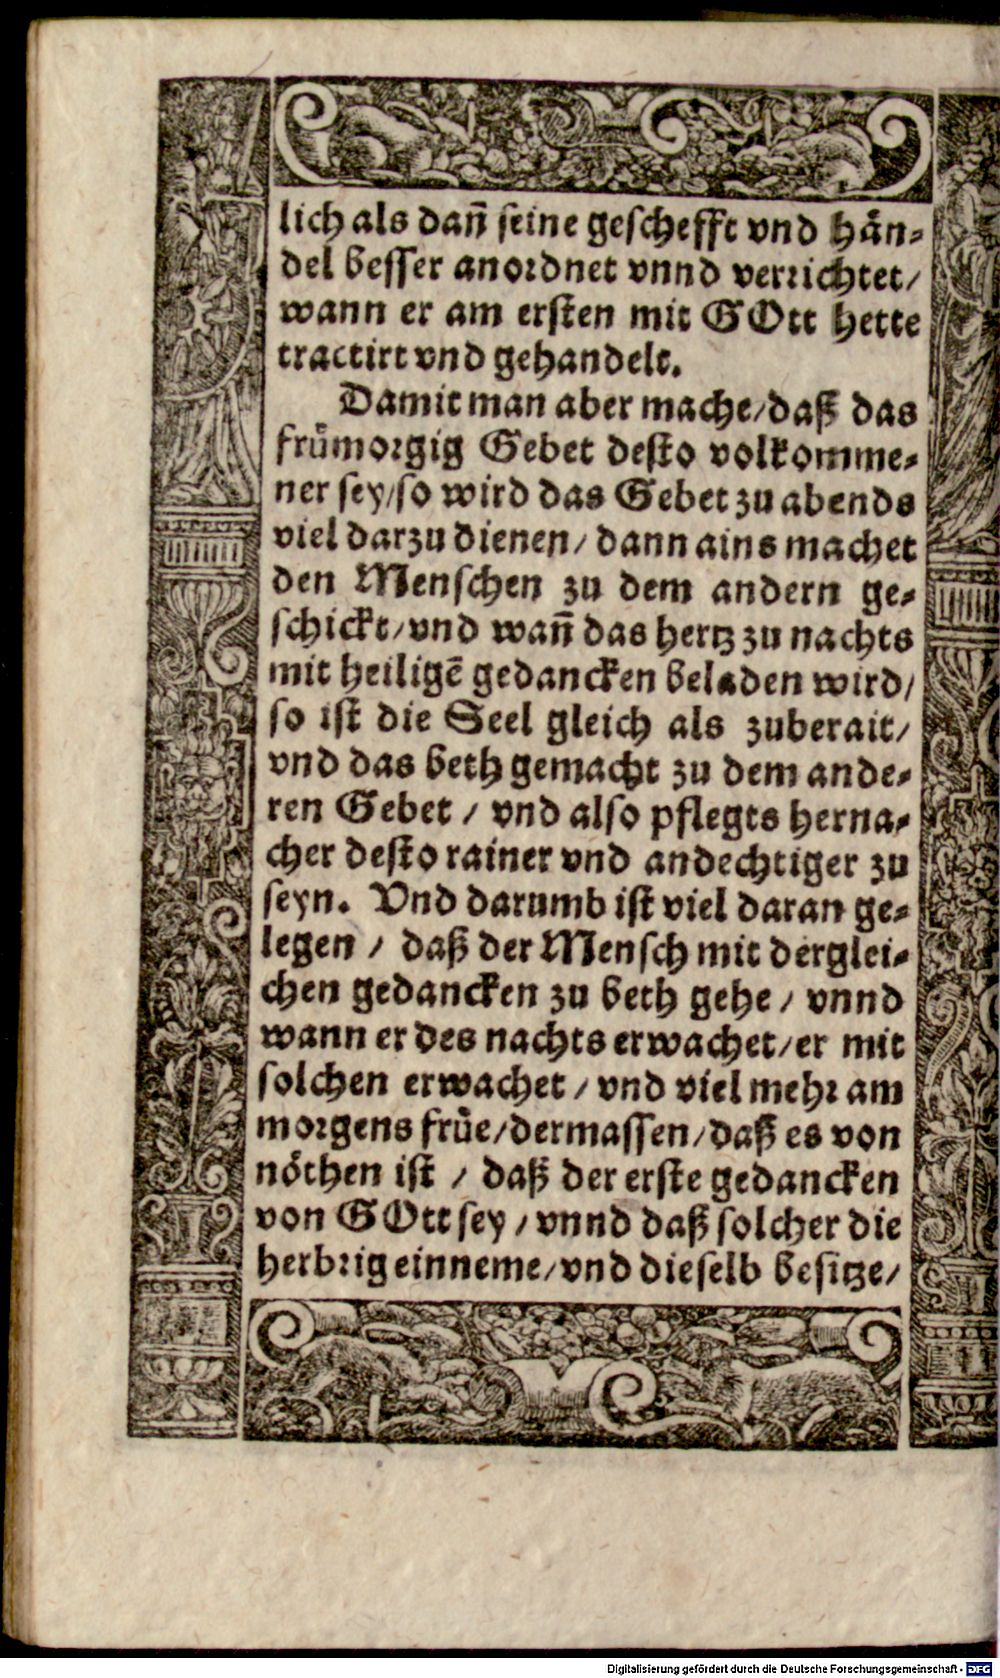 lich als dañ seine geschefft vnd hän⸗
del besser anordnet vnnd verrichtet/
wann er am ersten mit GOtt hette
tractirt vnd gehandelt.
Damit man aber mache/daß das
frümorgig Gebet desto volkomme⸗
ner sey/so wird das Gebet zu abends
viel darzu dienen/ dann ains machet
den Menschen zu dem andern ge⸗
schickt/vnd wañ das hertz zu nachts
mit heiligē gedancken beladen wird/
so ist die Seel gleich als zuberait/
vnd das beth gemacht zu dem ande⸗
ren Gebet / vnd also pflegts herna⸗
cher desto rainer vnd andechtiger zu
seyn. Vnd darumb ist viel daran ge⸗
legen / daß der Mensch mit derglei⸗
chen gedancken zu beth gehe / vnnd
wann er des nachts erwachet/er mit
solchen erwachet / vnd viel mehr am
morgens früe/dermassen/daß es von
nöthen ist / daß der erste gedancken
von GOtt sey / vnnd daß solcher die
herbrig einneme/vnd dieselb besitze/
Digitalisierung gefördert durch die Deutsche Forschungsgemeinschaft - DFG